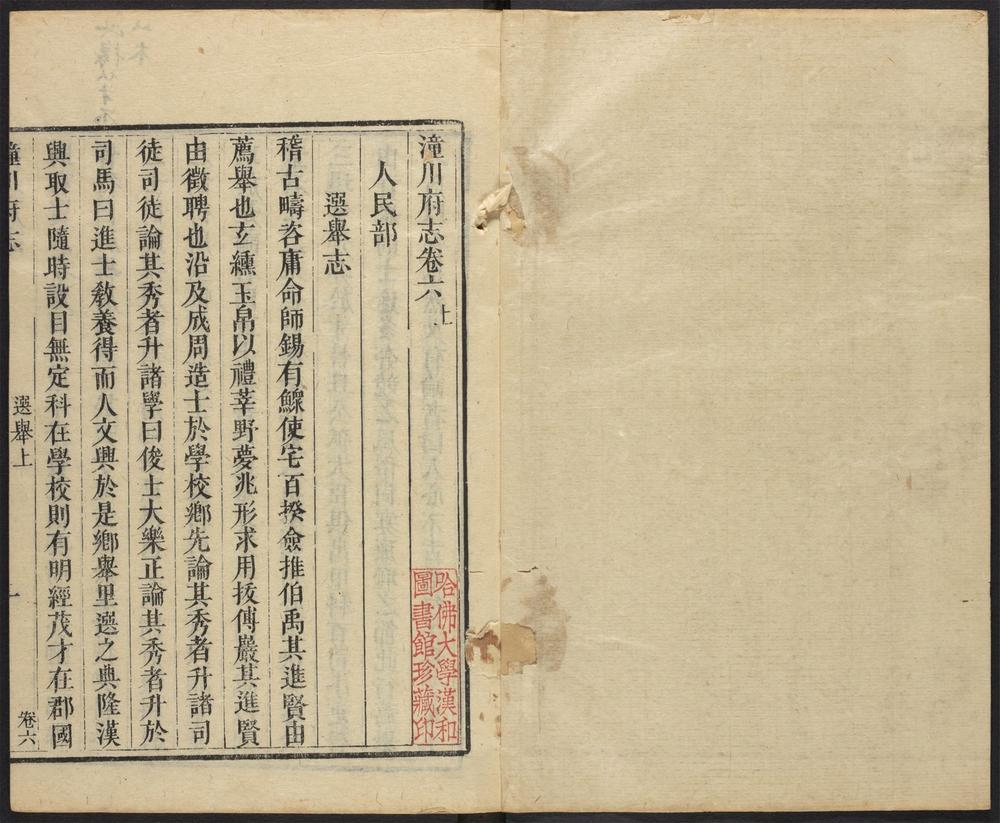 潼川府志卷六上
人民部
選舉志
稽古疇咨庸命師錫有鰥使宅百揆僉推伯禹其進賢由
薦舉也玄纁玉帛以禮莘野夢兆形求用拔傅巖其進賢
由徵聘也沿及成周造士於學校鄉先論其秀者升諸司
徒司徒論其秀者升諸學曰俊士大樂正論其秀者升於
司馬曰進士教養得而人文興於是鄉舉里選之典隆漢
興取士隨時設目無定科在學校則有明經茂才在郡國
潼川府志
選舉上
一
卷六
哈佛大學漢和
圖書館珍藏印